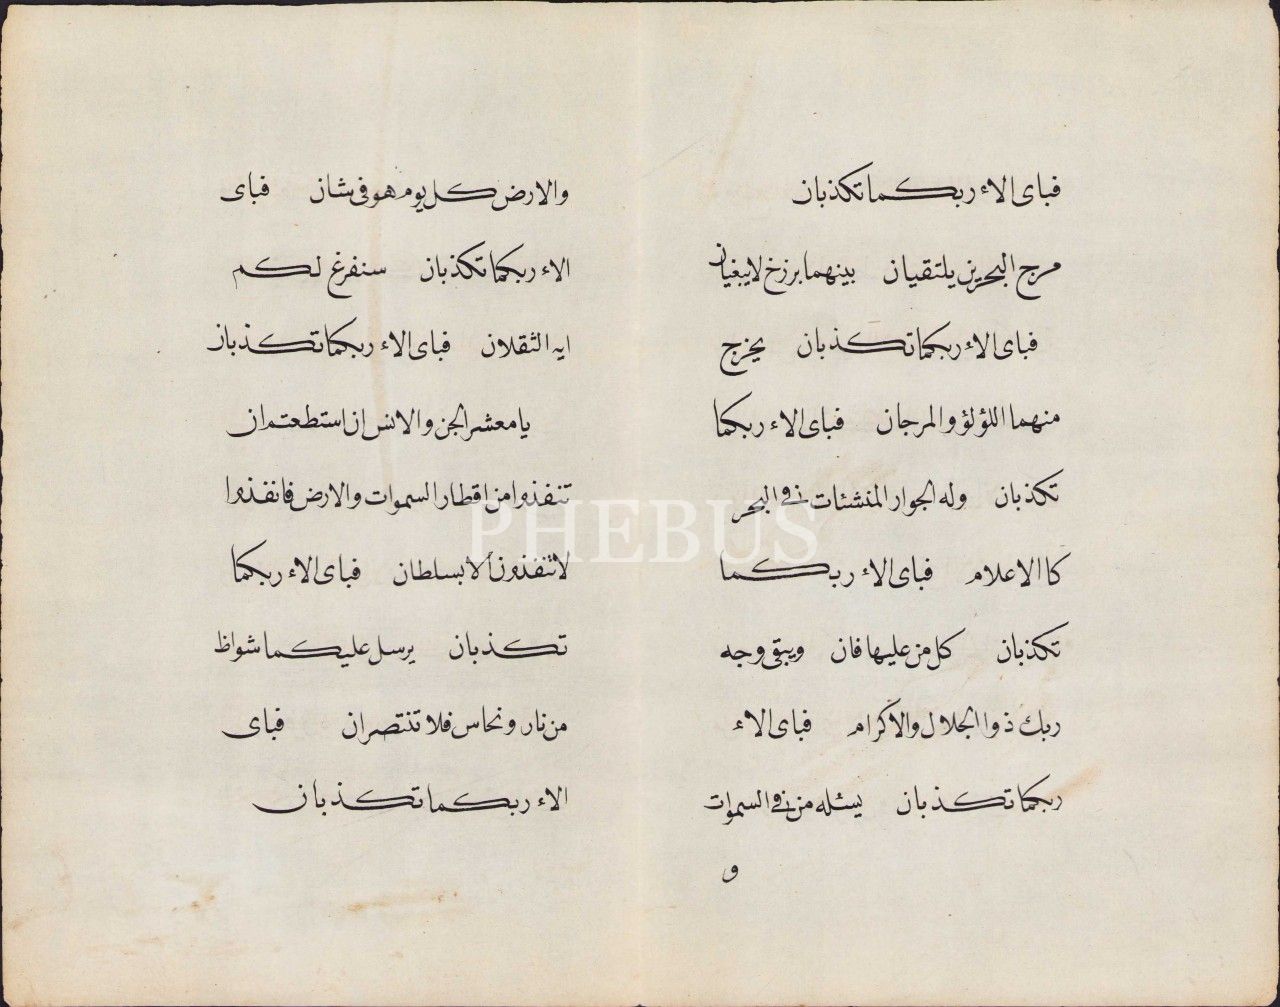 فبای الاء ربکما تکذبان
مرج البحرین یلتقیان بینهما برزخ لایبغیان
فبای الاء ربکما تکذبان یخرج
منهما اللؤلؤ والمرجان فبای الاء ربکما
تکذبان وله الجوار المنشئات فی البحر
کا الاعلام فبای الاء ربکما
تکذبان کل من علیها فان ویبقی وجه
ربك ذوا الجلال والاکرام فبای الاء
ربکما تکذبان یسئله من فی السموات
و
والارض کل یوم هو فی شان فبای
الاء ربکما تکذبان سنفرغ لکم
ایه الثقلان فبای الاء ربکما تکذبان
یا معشر الجن والانس ان استطعتم ان
تنفذوا من اقطار السموات والارض فانفذوا
لاتنفذون الا بسلطان فبای الاء ربکما
تکذبان یرسل علیکما شواظ
من نار ونحاس فلا تنتصران فبای
الاء ربکما تکذبان
PHEBUS